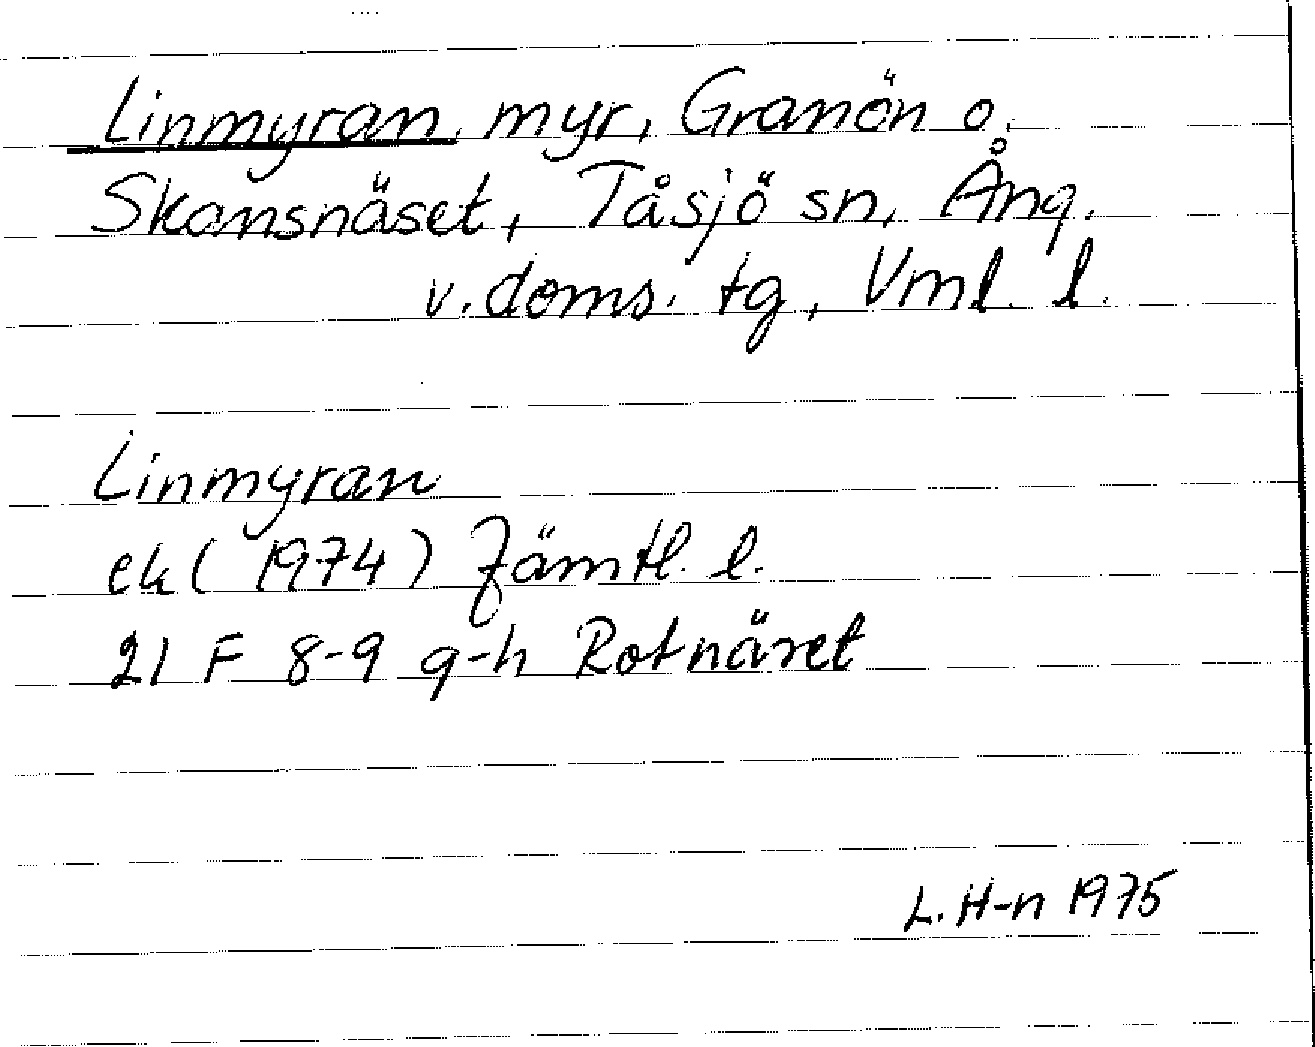 Linmyran, myr, Granön o.
Skansnäset, Tåsjö sn, Ång.
v. doms. tg, Vml. l.
Linmyran
ek (1974) Jämtl. l.
21 F 8-9 g-h Rotnäset
L. H-n 1975